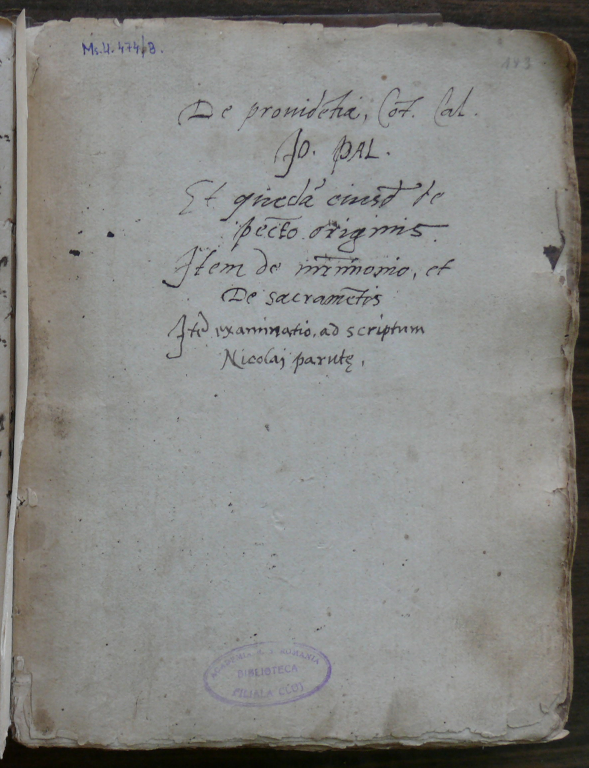 Ms.U. 474/B.
183
De prouidētia, Cōt. Cal.
JO. PAL.
Et quedā eiusd de
pēcto originis.
Item de mr̄imonio, et
De sacramētis
Itē examinatio, ad scriptum
Nicolai parutę.
BIBLIOTECA
FILIALA CLUJ